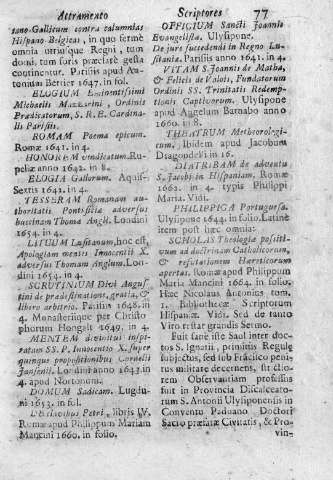 Atramento
Scriptores 77
tano Gallicum contra calumnias
Hispano Belgicas, in quo fermè
omnia utriusque Regni, tum
domi, tum foris præclarè gesta
continentur. Parisiis apud An-
tonium Bertier 1647. in fol.
ELOGIUM Eminentissimi
Michaelis Mazerini, Ordinis
Prædicatorum, S. R. E. Cardina-
lis Parisiis.
ROMAM Poema epicum.
Romæ 1641. in 4.
HONOREM vindicatum. Ru-
pellæ anno 1642. in 8.
ELOGIA Gallorum. Aquis-
Sextis 1642. in 4.
TESSERAM Romanam au-
thoritatis Pontificiæ adversus
buccinam Thomæ Angli. Londini
1654. in 4.
LITUUM Lusitanum, hoc est,
Apologiam mentis Innocentii X.
adversus Thomam Anglum. Lon-
dini 1654. in 4.
SCRUTINIUM Divi Augus-
tini de prædestinatione, gratia, &
libero arbitrio. Parisiis 1648. in
4. Monasteriique per Christo
phorum Hongalt 1649. in 4.
MENTEM divinitus inspi-
ratam SS. P. Innocentio X. super
quinque propositionibus Cornelii
Jansenii. Londini anno 1643. in
4. apud Nortonum.
DOMUM Sadicam. Lugdu-
ni 1653. in fol.
Petri, libris IV.
Romæ apud Philippum Mariam
Mancini 1660. in folio.
OFFICIUM Sancti Joannis
Evangelistæ. Ulysipone.
De jure succedendi in Regno Lu-
sitaniæ. Parisiis anno 1641. in 4.
VITAM S. Joannis de Matha,
& Felicis de Valois, Fundatorum
Ordinis SS. Trinitatis Redemp-
tionis Captivorum. Ulysipone
apud Angelum Barnabo anno
1660. in 8.
THEATRUM Metheorologi-
cum, Ibidem apud Jacobum
Dragondeli in 16.
DIATRIBAM de adventu
S. Jacobi in Hispaniam. Romæ
1662. in 4. typis Philippi
Mariæ. Vidi.
PHILIPPICA Portuguesa.
Ulysipone 1644. in folio. Latinè
item post hæc omnia:
SCHOLAS Theologiæ positi-
væ ad doctrinam Catholicorum,
& refutationem Hæreticorum
apertas. Romæ apud Philippum
Maria Mancini 1664. in folio.
Hæc Nicolaus Antonius tom.
1. Bibliothecæ Scriptorum
Hispaniæ. Vidi. Sed de tanto
Viro restat grandis Sermo.
Fuit sanè iste Saul inter doc-
tos S. Ignatii, primitùs Regulæ
subjectos, sed sub Fráscico peni-
tus militate decernens, sit cli-
torem Observantiam professus
fuit in Provincia Discalceato-
rum S. Antonii Ulysiponensis in
Conventu Paduano Doctori
Sacro præfatæ Civitatis, & Pro-
vin-